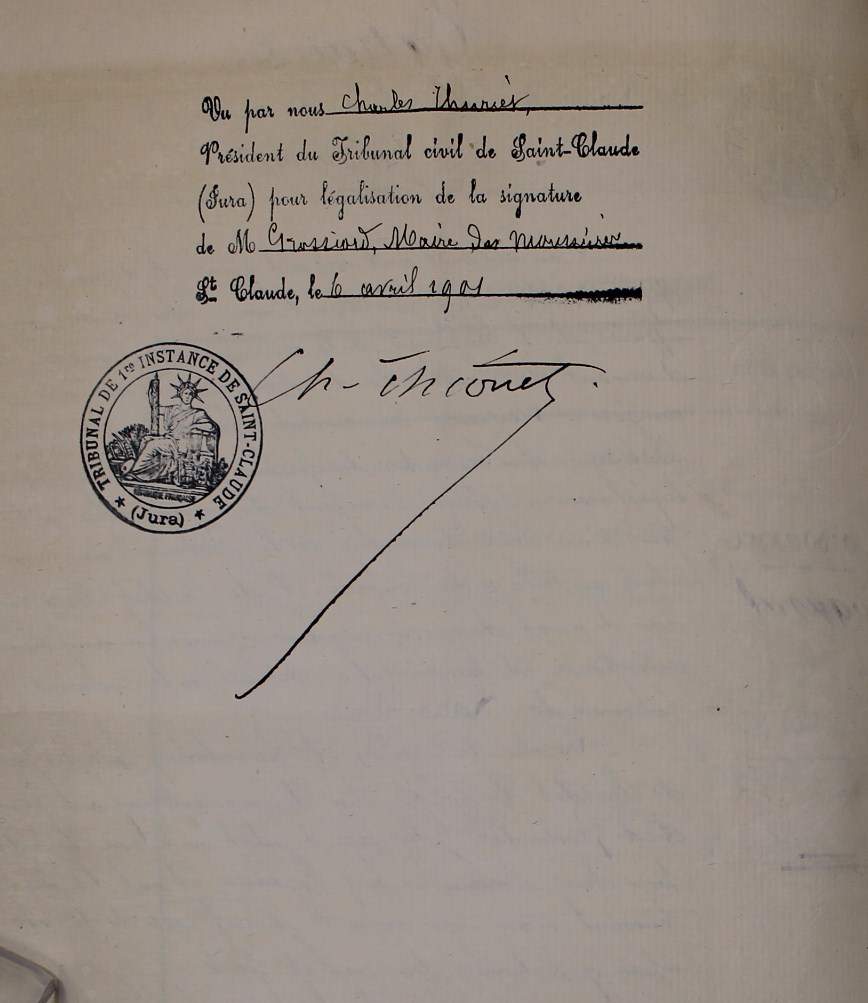 Vu par nous Charles Thuriet,
Président du Tribunal civil de Saint-Claude
(Jura) pour légalisation de la signature
de M Grossiord, Maire des Moussières
St Claude, le 6 avril 1901
Ch. Thuriet.
TRIBUNAL DE 1re INSTANCE DE SAINT-CLAUDE
(Jura)
RÉPUBLIQUE FRANÇAISE